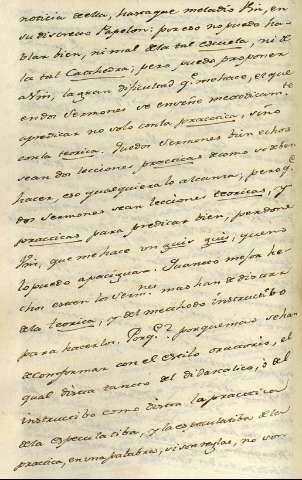 noticia de ella, hasta que me la dió Vm, en
su discreto Papelon: por eso no puedo ha-
blar bien, ni mal de la tal escuela, ni de
la tal Cathedra; pero puedo proponer
a Vm, la gran dificultad q.e me hace, el que
en dos Sermones se enseñe methodicam.te
a predicar no solo con la practica, sino
con la teorica. Que dos Sermones bien echos
sean dos lecciones practicas de como se deben
hacer, eso qualquiera lo alcanza; pero q.e
dos Sermones sean lecciones teoricas, y
practicas para predicar bien, perdone
Vm, que me hace un quis quis, que no
lo puedo apaciguar. Quanto mejor he-
chos esten los Serm.nes mas han de distar
de la teorica, y del methodo instructibo
para hacerlos. Porq.e? porque mas se han
de conformar con el estilo oratorio, el
qual dista tanto del didascalico, ò del
instructibo como dista la practica
de la especulatiba, y la especulatiba de la
practica, en una palabra, si son reglas, no son